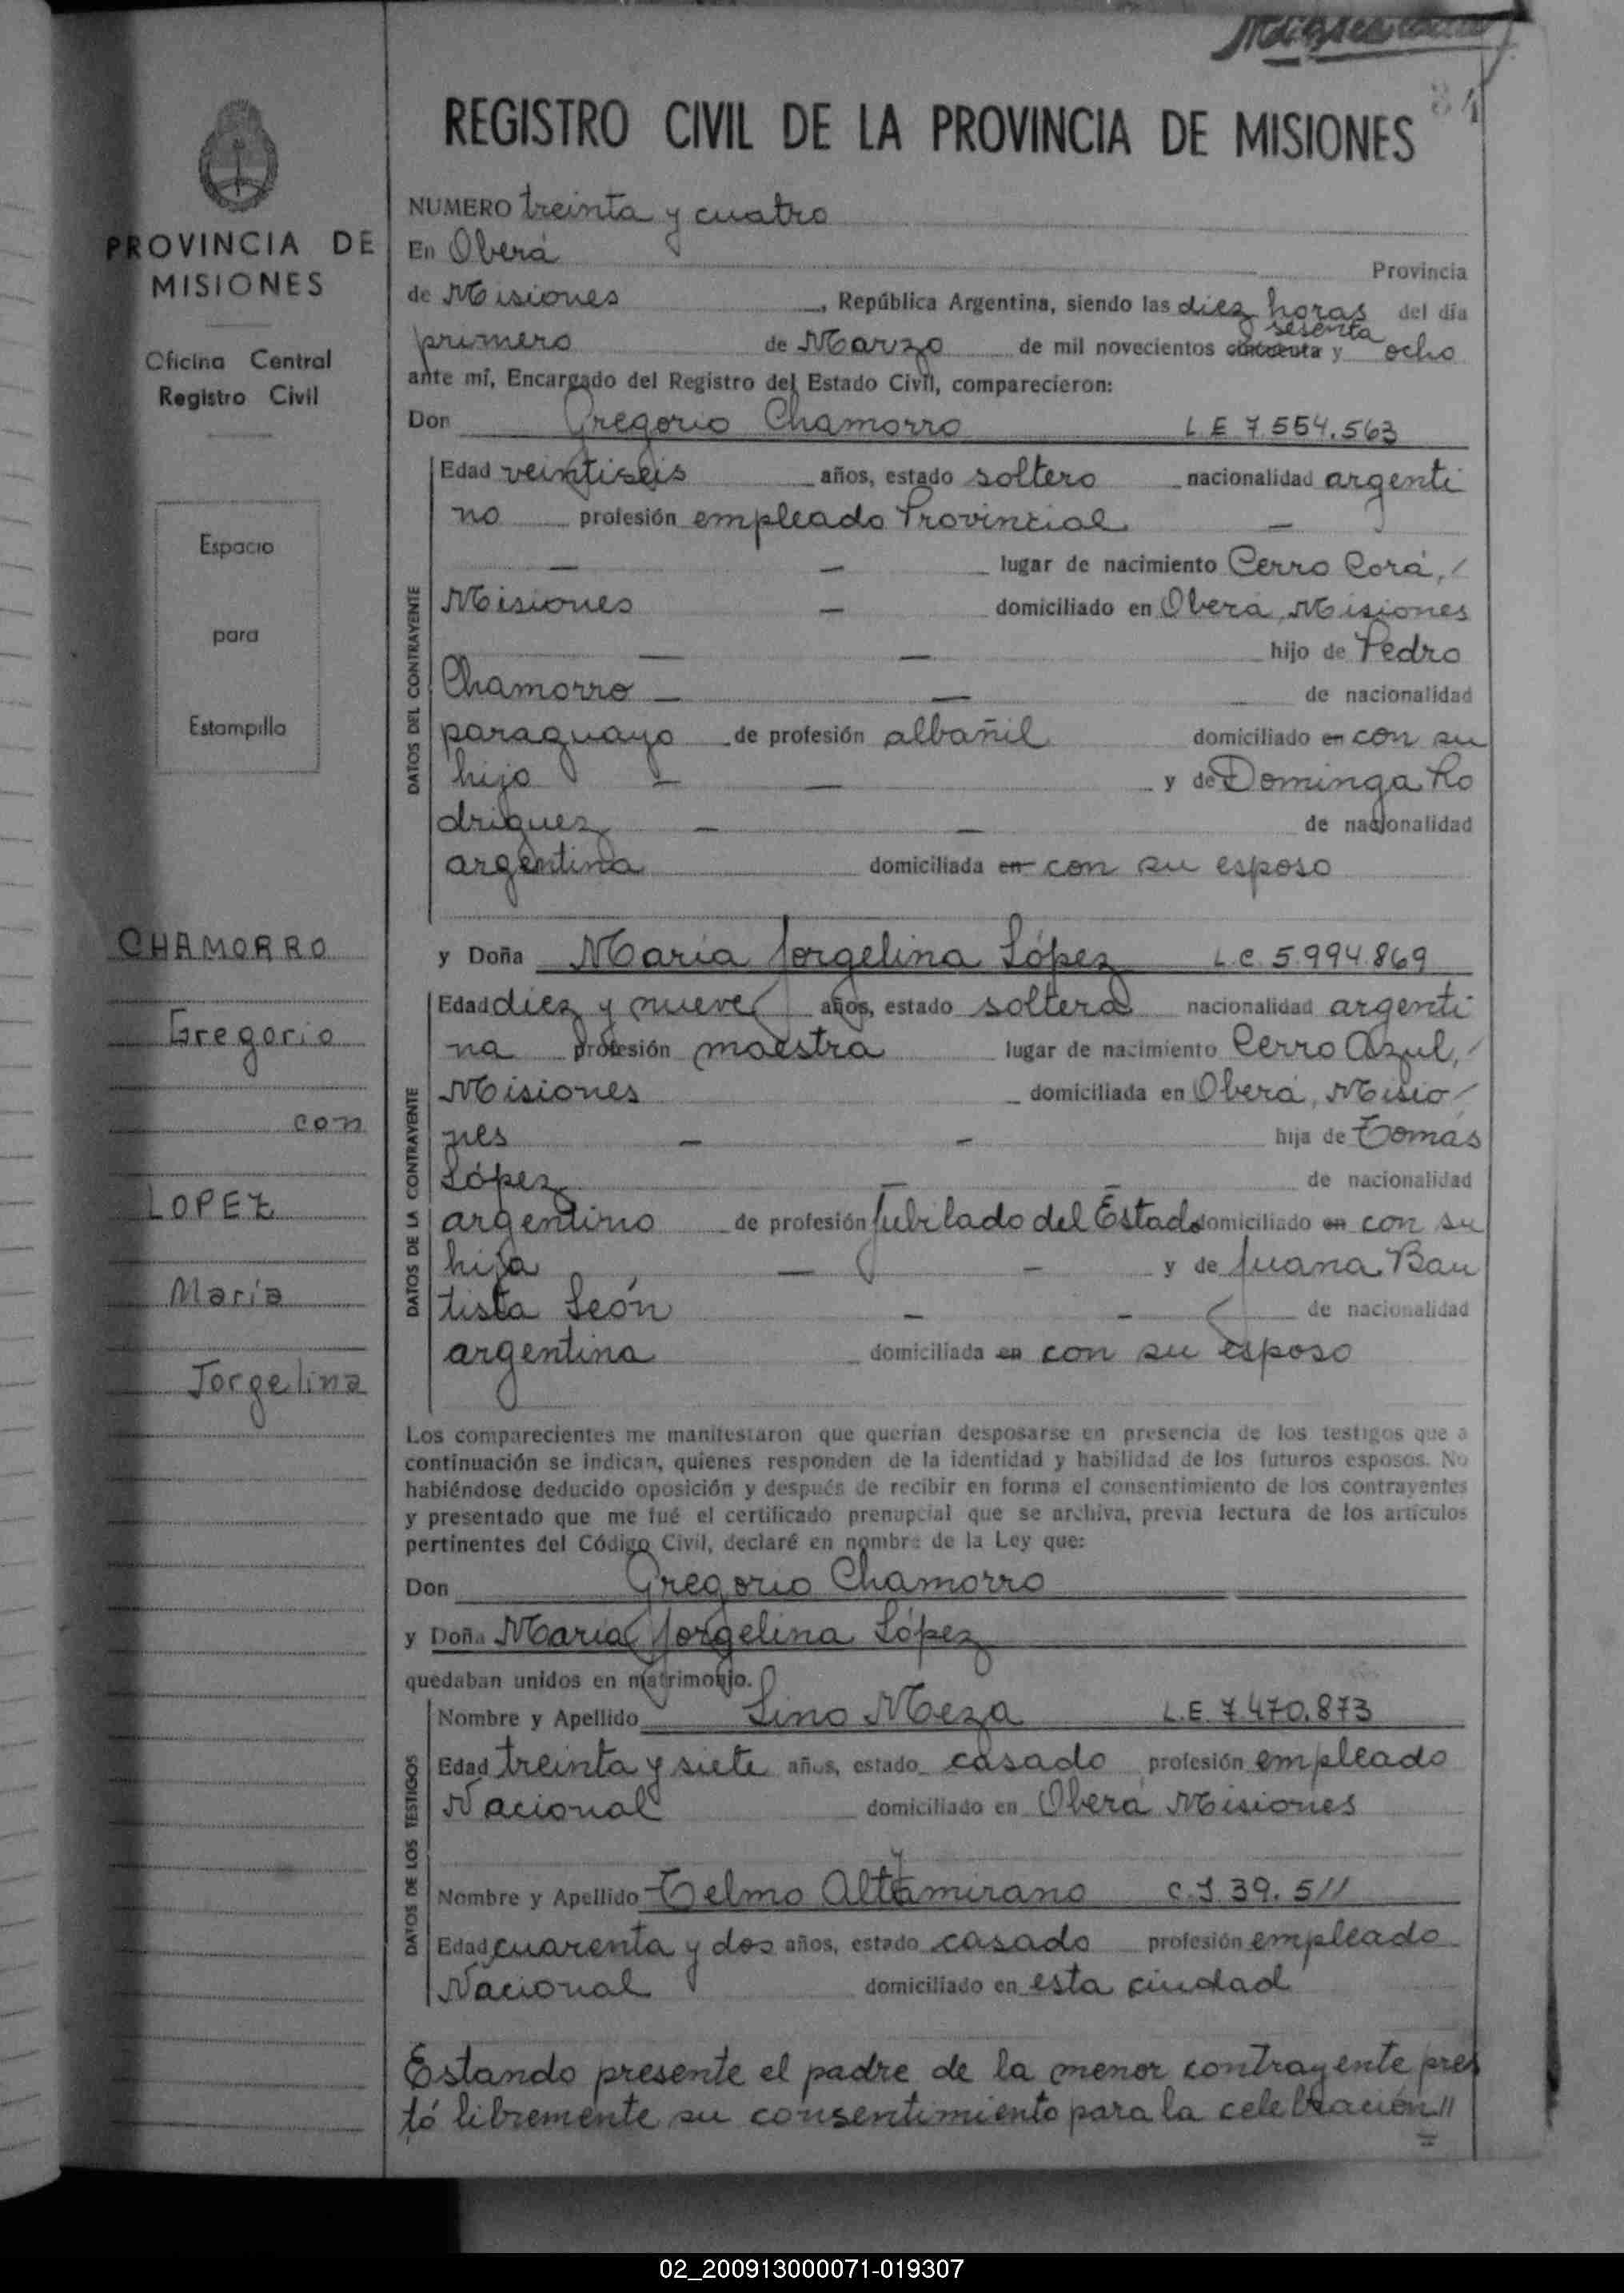 34
REGISTRO CIVIL DE LA PROVINCIA DE MISIONES
PROVINCIA DE
MISIONES
Oficina Central
Registro Civil
Espacio
para
Estampilla
CHAMORRO
Gregorio
con
LOPEZ
María
Jorgelina
NUMERO treinta y cuatro
En Oberá Provincia
de Misiones, República Argentina, siendo las diez horas del día
sesenta
primero de Marzo de mil novecientos cincuenta y ocho
ante mí, Encargado del Registro del Estado Civil, comparecieron:
Don Gregorio Chamorro L.E 7.554.563
DATOS DEL CONTRAYENTE
Edad veintiseis años, estado soltero nacionalidad argenti
no profesión empleado Provincial —
— — lugar de nacimiento Cerro Corá, /
Misiones — domiciliado en Oberá, Misiones
— — hijo de Pedro
Chamorro — — de nacionalidad
paraguayo de profesión albañil domiciliado en con su
hijo — — y de Dominga Ro
driguez — — de nacionalidad
argentina domiciliada en con su esposo
y Doña María Jorgelina López L.C. 5.994.869
DATOS DE LA CONTRAYENTE
Edad diez y nueve años, estado soltera nacionalidad argenti
na profesión maestra lugar de nacimiento Cerro Azul, /
Misiones domiciliada en Oberá, Misio /
nes — — hija de Tomás
López — de nacionalidad
argentino de profesión Jubilado del Estado domiciliado en con su
hija — — y de Juana Bau
tista León — — de nacionalidad
argentina domiciliada en con su esposo
Los comparecientes me manifestaron que querían desposarse en presencia de los testigos que a
continuación se indican, quienes responden de la identidad y habilidad de los futuros esposos. No
habiéndose deducido oposición y después de recibir en forma el consentimiento de los contrayentes
y presentado que me fué el certificado prenupcial que se archiva, previa lectura de los artículos
pertinentes del Código Civil, declaré en nombre de la Ley que:
Don Gregorio Chamorro
y Doña María Jorgelina López
quedaban unidos en matrimonio.
DATOS DE LOS TESTIGOS
Nombre y Apellido Lino Meza L.E. 7.470.873
Edad treinta y siete años, estado casado profesión empleado
Nacional domiciliado en Oberá Misiones
Nombre y Apellido Telmo Altamirano C.I 39.511
Edad cuarenta y dos años, estado casado profesión empleado
Nacional domiciliado en esta ciudad
Estando presente el padre de la menor contrayente pres
tó libremente su consentimiento para la celebración //
02_200913000071-019307